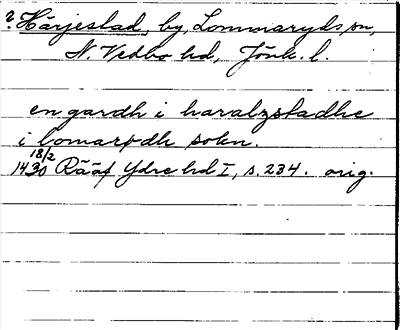 ? Härjestad, by, Lommaryds sn,
N. Vedbo hd, Jönk. l.
en gardh i haralzstadhe
i lomarødh sokn.
18/2
1430 Rääf Ydre hd I, s. 234. orig.